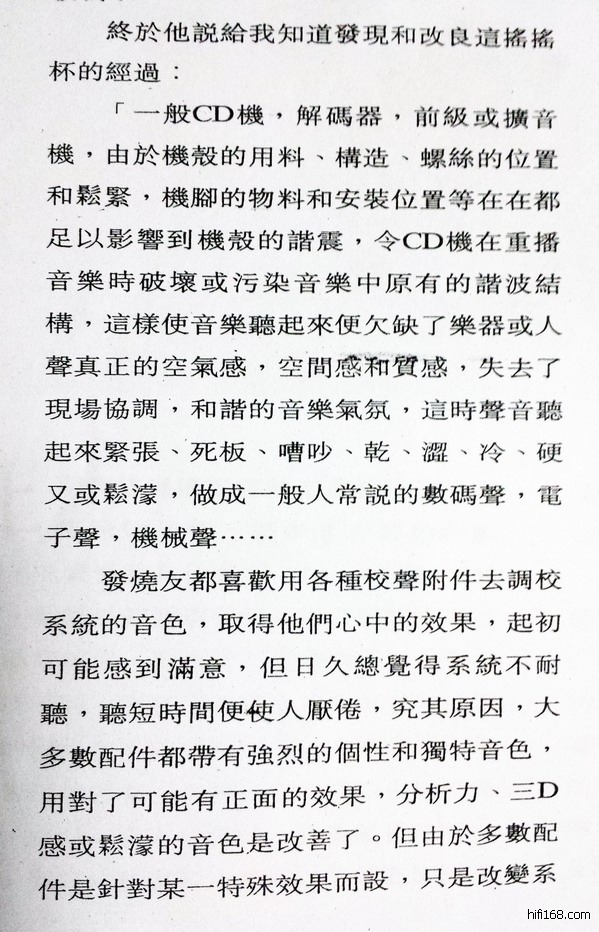 終於他説給我知道發現和改良這搖搖
杯的經過：
「一般CD機，解碼器，前級或擴音
機，由於機殼的用料、構造、螺絲的位置
和鬆緊，機腳的物料和安裝位置等在在都
足以影響到機殼的諧震，令CD機在重播
音樂時破壞或污染音樂中原有的諧波結
構，這樣使音樂聽起來便欠缺了樂器或人
聲真正的空氣感，空間感和質感，失去了
現場協調，和諧的音樂氣氛，這時聲音聽
起來緊張、死板、嘈吵、乾、澀、冷、硬
又或鬆濛，做成一般人常説的數碼聲，電
子聲，機械聲……
發燒友都喜歡用各種校聲附件去調校
系統的音色，取得他們心中的效果，起初
可能感到滿意，但日久總覺得系統不耐
聽，聽短時間便使人厭倦，究其原因，大
多數配件都帶有強烈的個性和獨特音色，
用對了可能有正面的效果，分析力、三D
感或鬆濛的音色是改善了。但由於多數配
件是針對某一特殊效果而設，只是改變系
hifi168.com